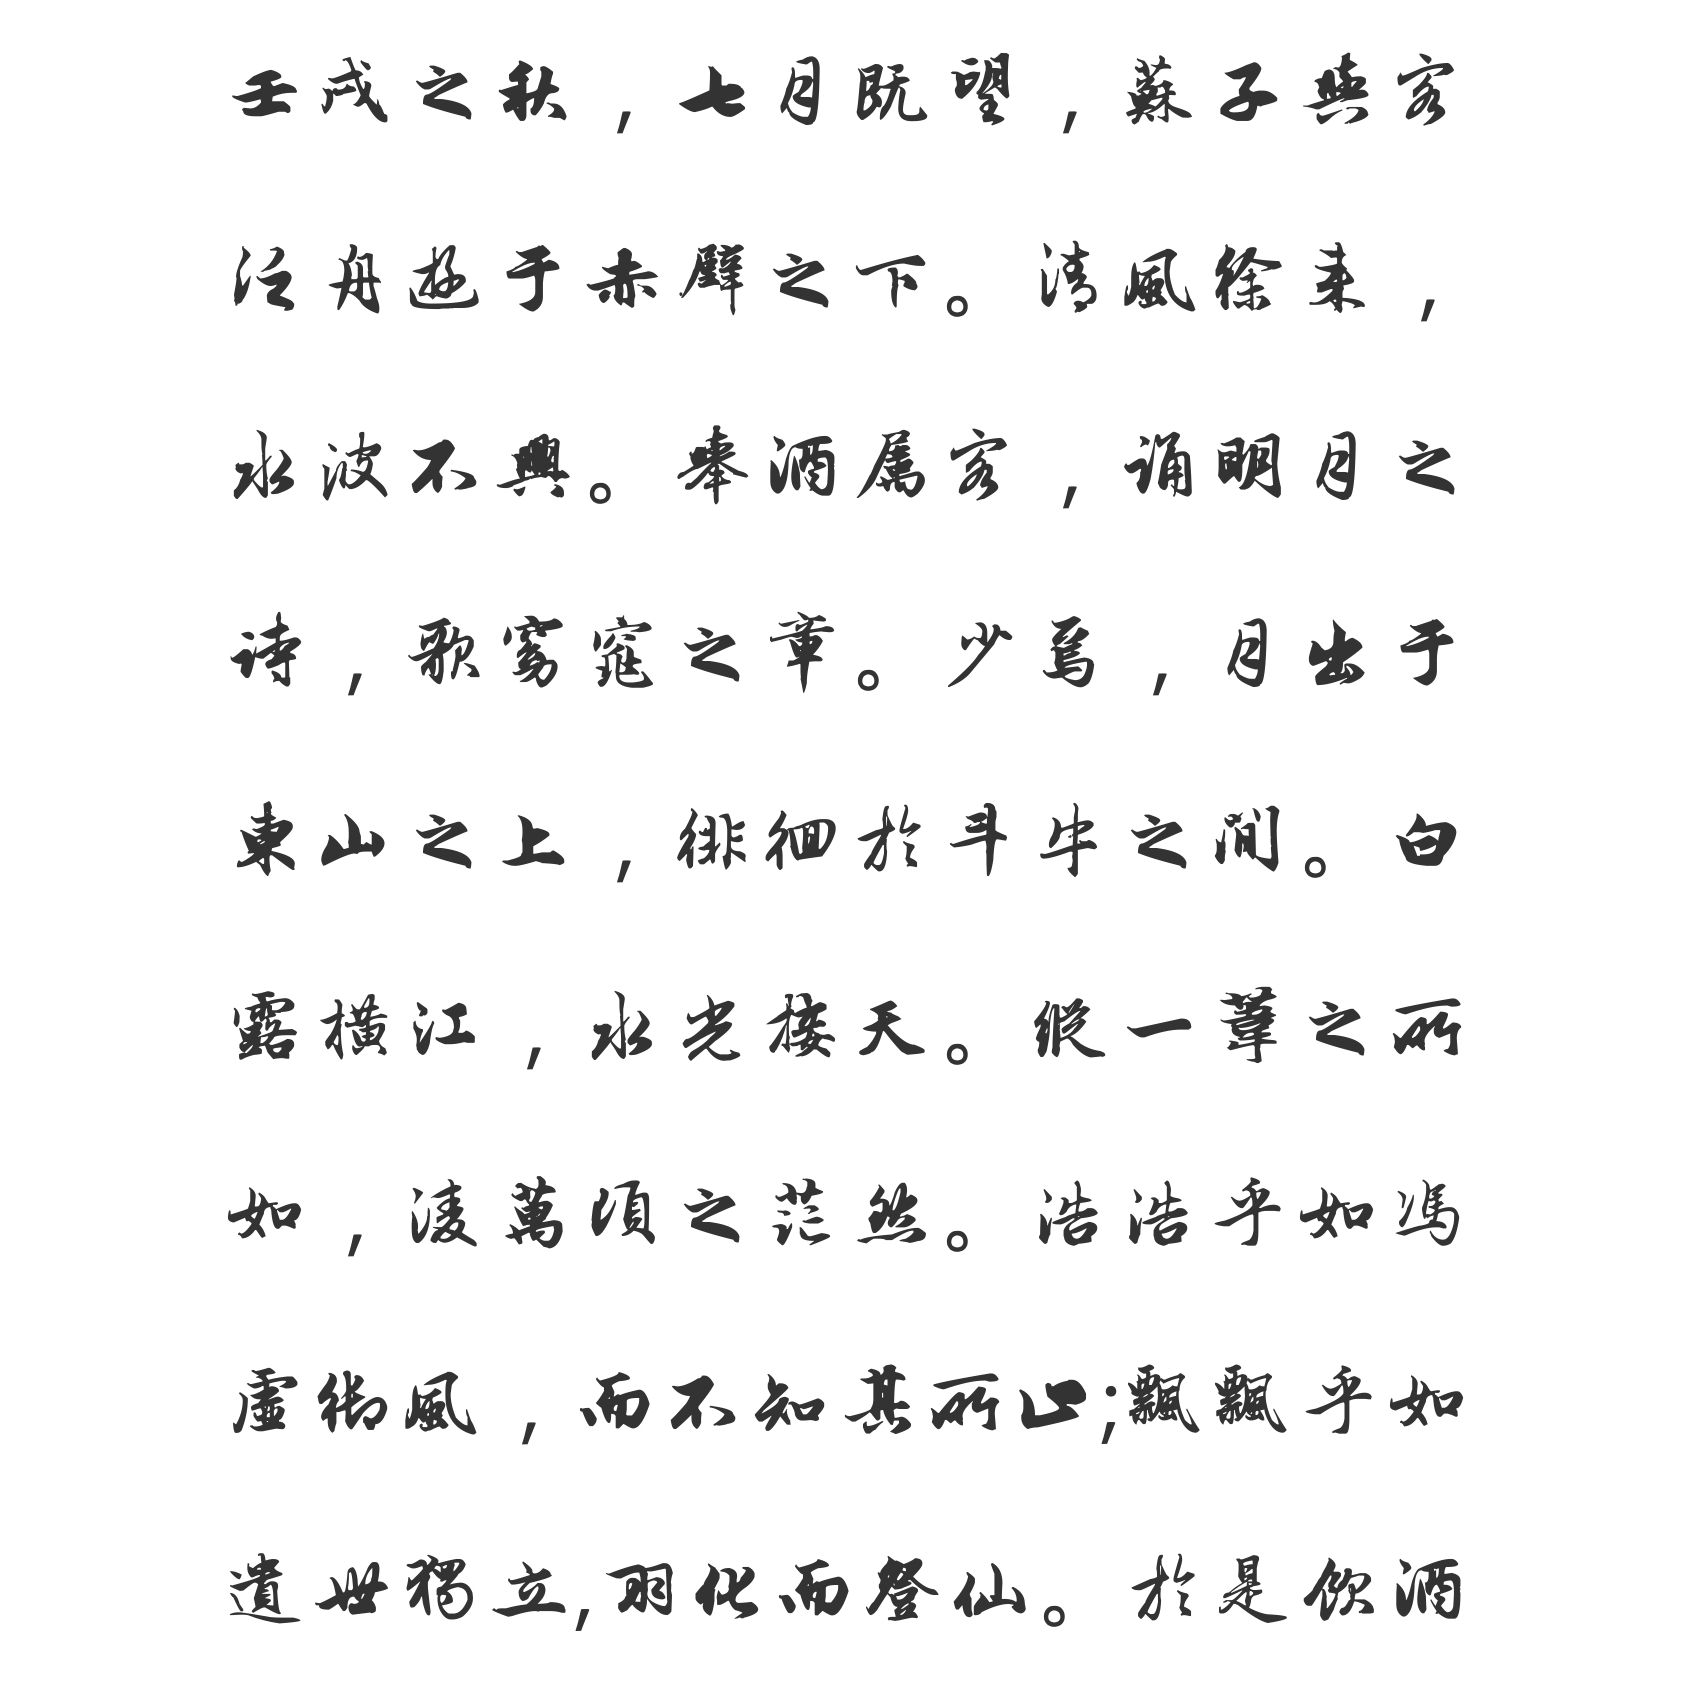 壬戌之秋，七月既望，蘇子與客
泛舟遊于赤壁之下。清風徐来，
水波不興。舉酒属客，诵明月之
诗，歌窈窕之章。少焉，月出于
東山之上，徘徊於斗牛之间。白
露橫江，水光接天。縱一葦之所
如，淩萬頃之茫然。浩浩乎如馮
虛御風，而不知其所止;飄飄乎如
遺世獨立,羽化而登仙。於是飲酒